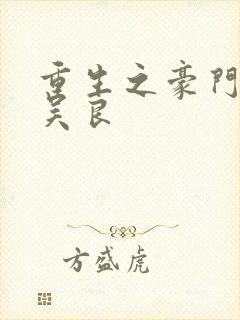 重生之豪門
吴良
方盛虎